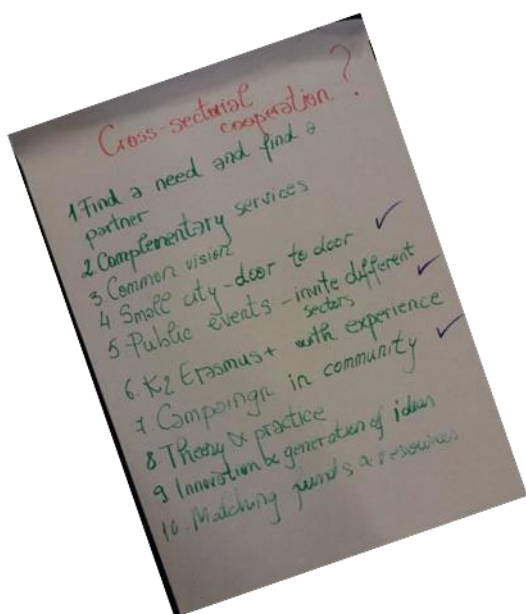 Cross-sectorial
cooperation?
1. Find a need and find a
partner
2 Complementary services
3 Common vision
4 Small city - door to door ✓
5. Public events - invite different ✓
sectors
6. K2 Erasmus+ with experience
7 Campaingn in community ✓
8 Theory & practice
9 Innovation & generation of ideas
10. Matching funds & resources